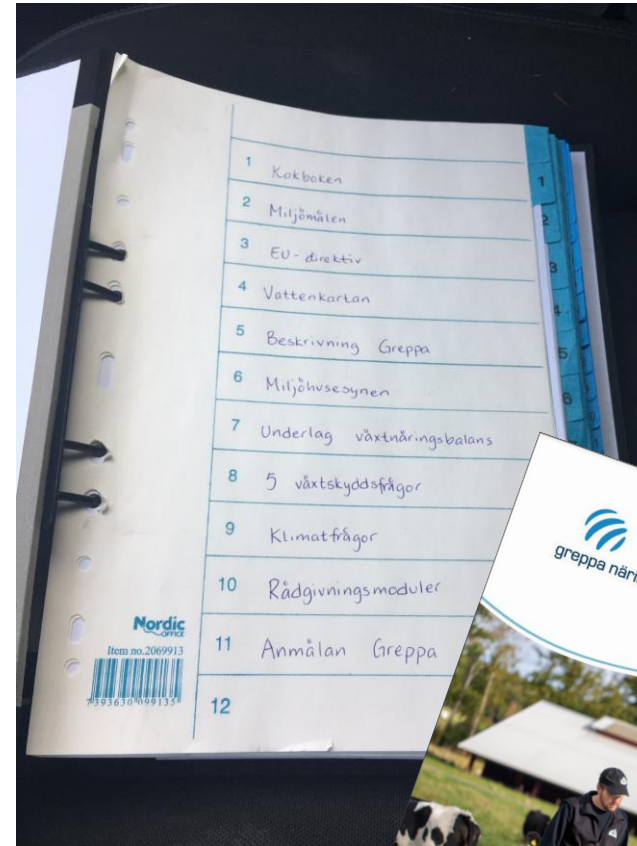 1 Kokboken
2 Miljömålen
3 EU-direktiv
4 Vattenkartan
5 Beskrivning Greppa
6 Miljöhusesynen
7 Underlag växtnäringsbalans
8 5 växtskyddsfrågor
9 Klimatfrågor
10 Rådgivningsmoduler
11 Anmälan Greppa
12
Nordic
OFFICE
Item no.2069913
7393630 099135
1
2
3
4
5
6
greppa när